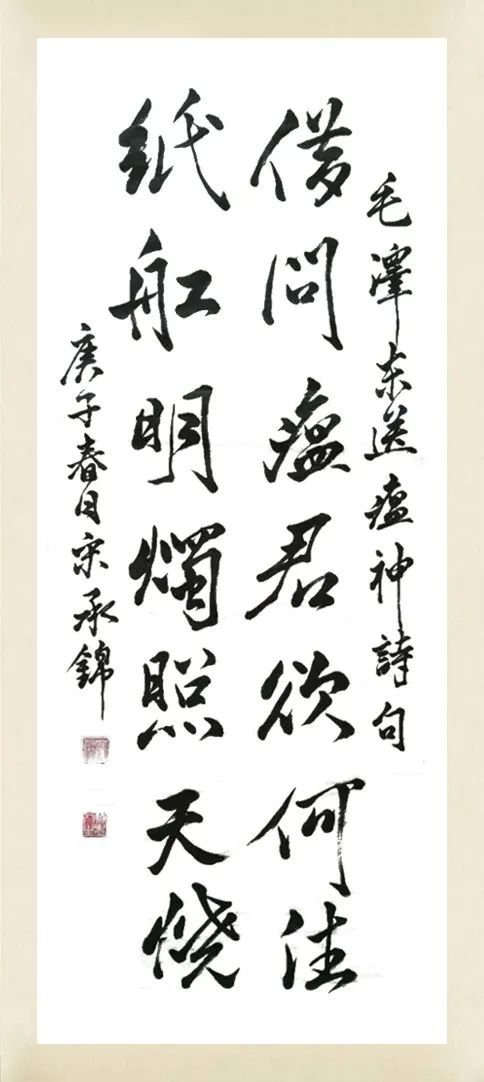 毛澤东送瘟神詩句
借問瘟君欲何往
纸船明燭照天烧
庚子春日宋承錦